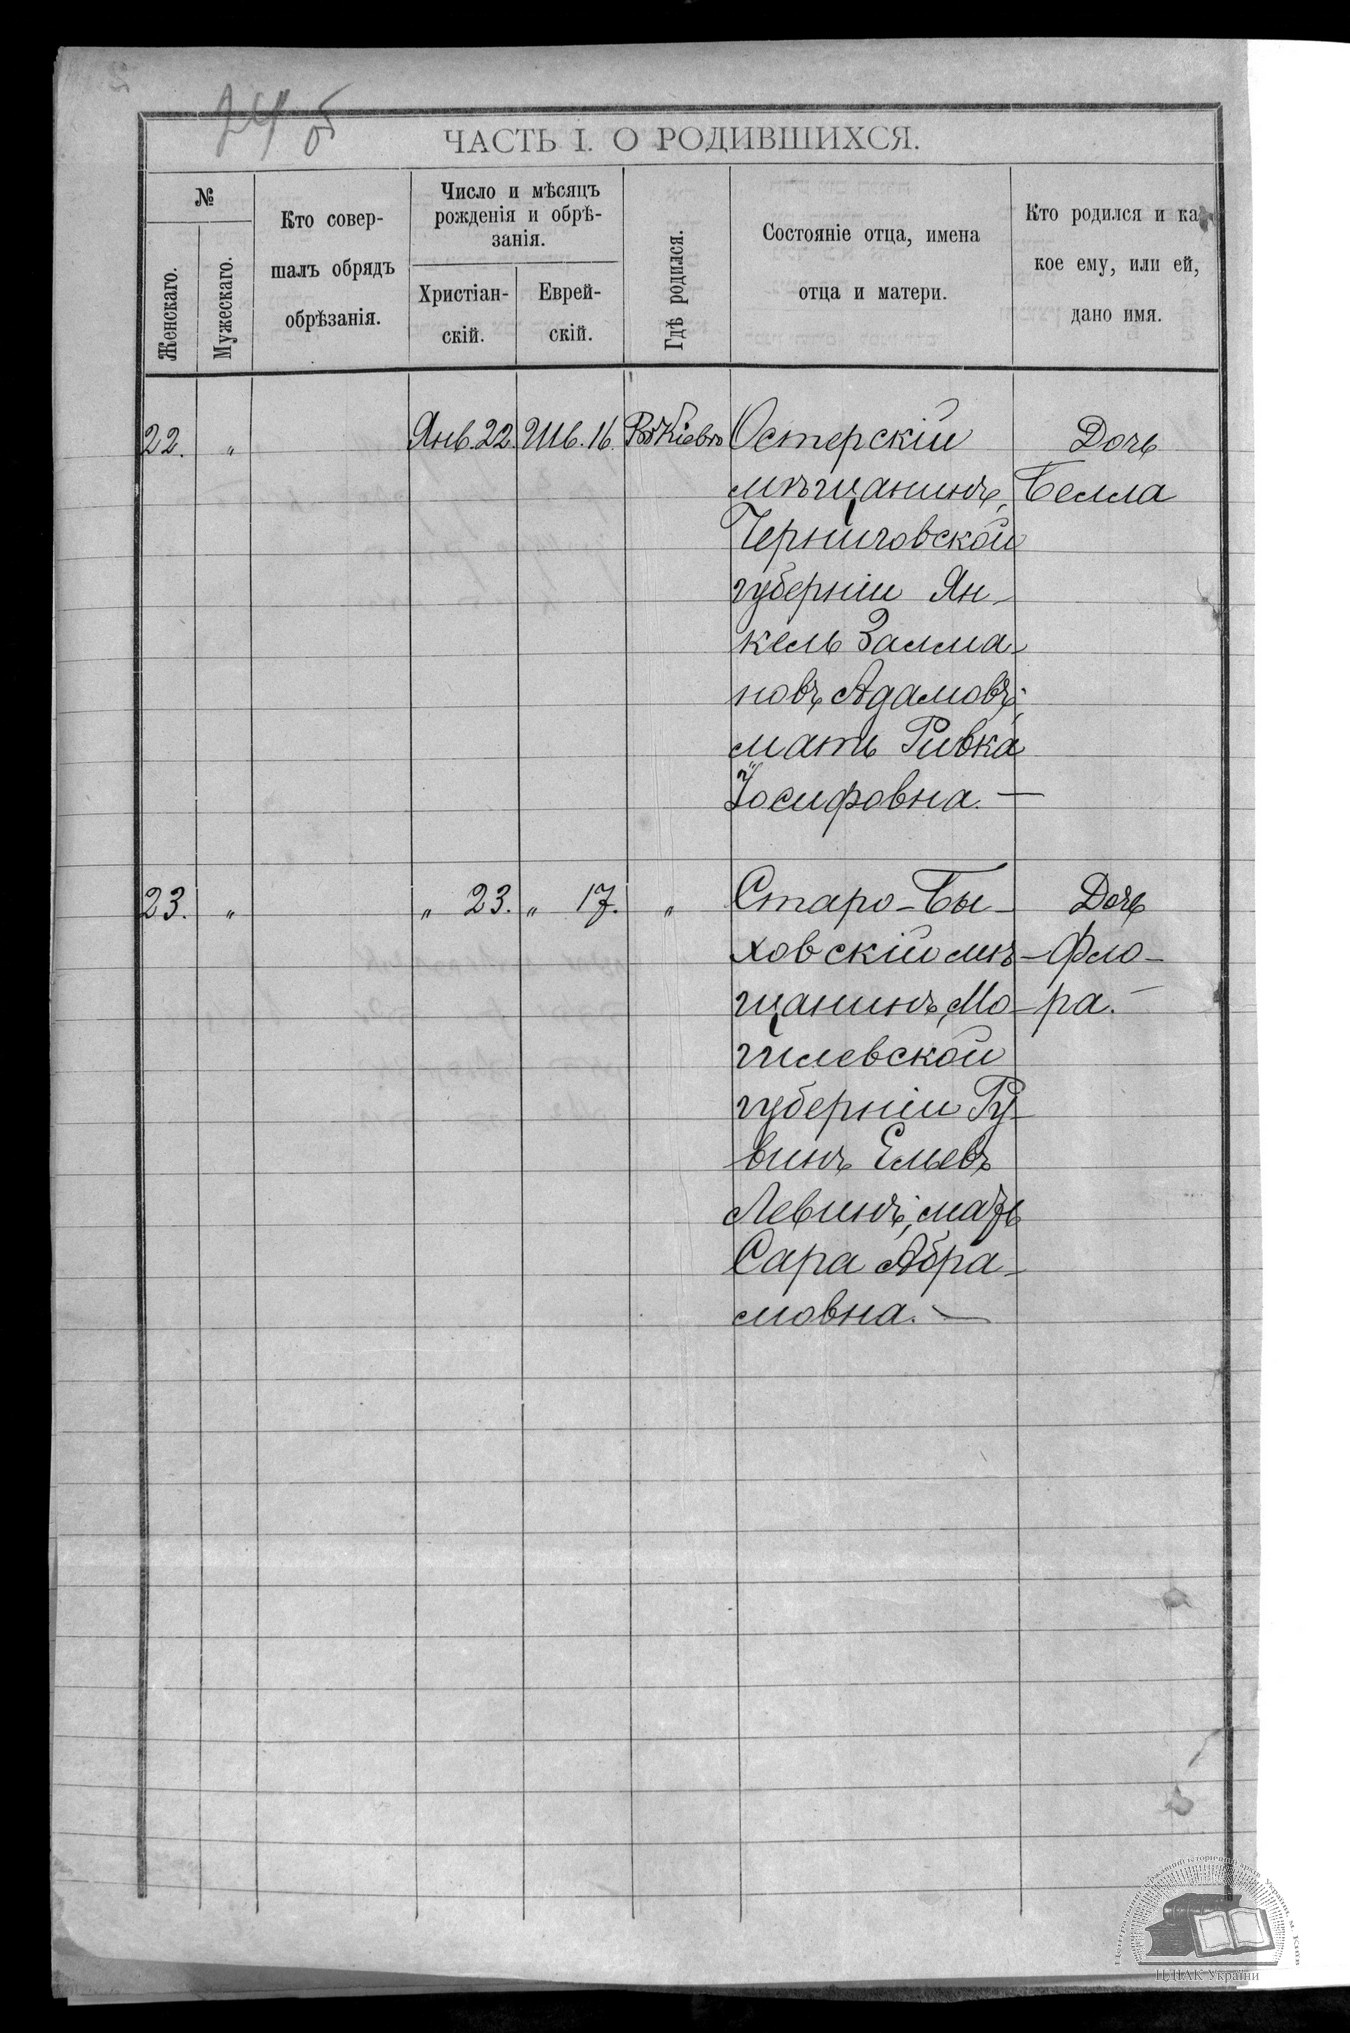 об
ЧАСТЬ I. О РОДИВШИХСЯ.
№
Женскаго.
Мужескаго.
Кто совер-
шалъ обрядъ
обрѣзанія.
Число и мѣсяцъ
рожденія и обрѣ-
занія.
Христіан-
скій.
Еврей-
скій.
Гдѣ родился.
Состояніе отца, имена
отца и матери.
Кто родился и ка-
кое ему, или ей,
дано имя.
22. „ Янв. 22. Шв. 16. Въ Кіевѣ Остерскій Дочь
мѣщанинъ, Белла
Черниговской
губерніи Ян-
кель Залма-
новъ Адамовъ;
мать Ривка
Іосифовна. —
23. „ „ 23. „ 17. „ Старо-Бы- Дочь
ховскій мѣ- Фло-
щанинъ, Мо- ра. —
гилевской
губерніи Ру-
винъ Ельевъ
Левинъ; мать
Сара Абра-
мовна. —
ЦДІАК України